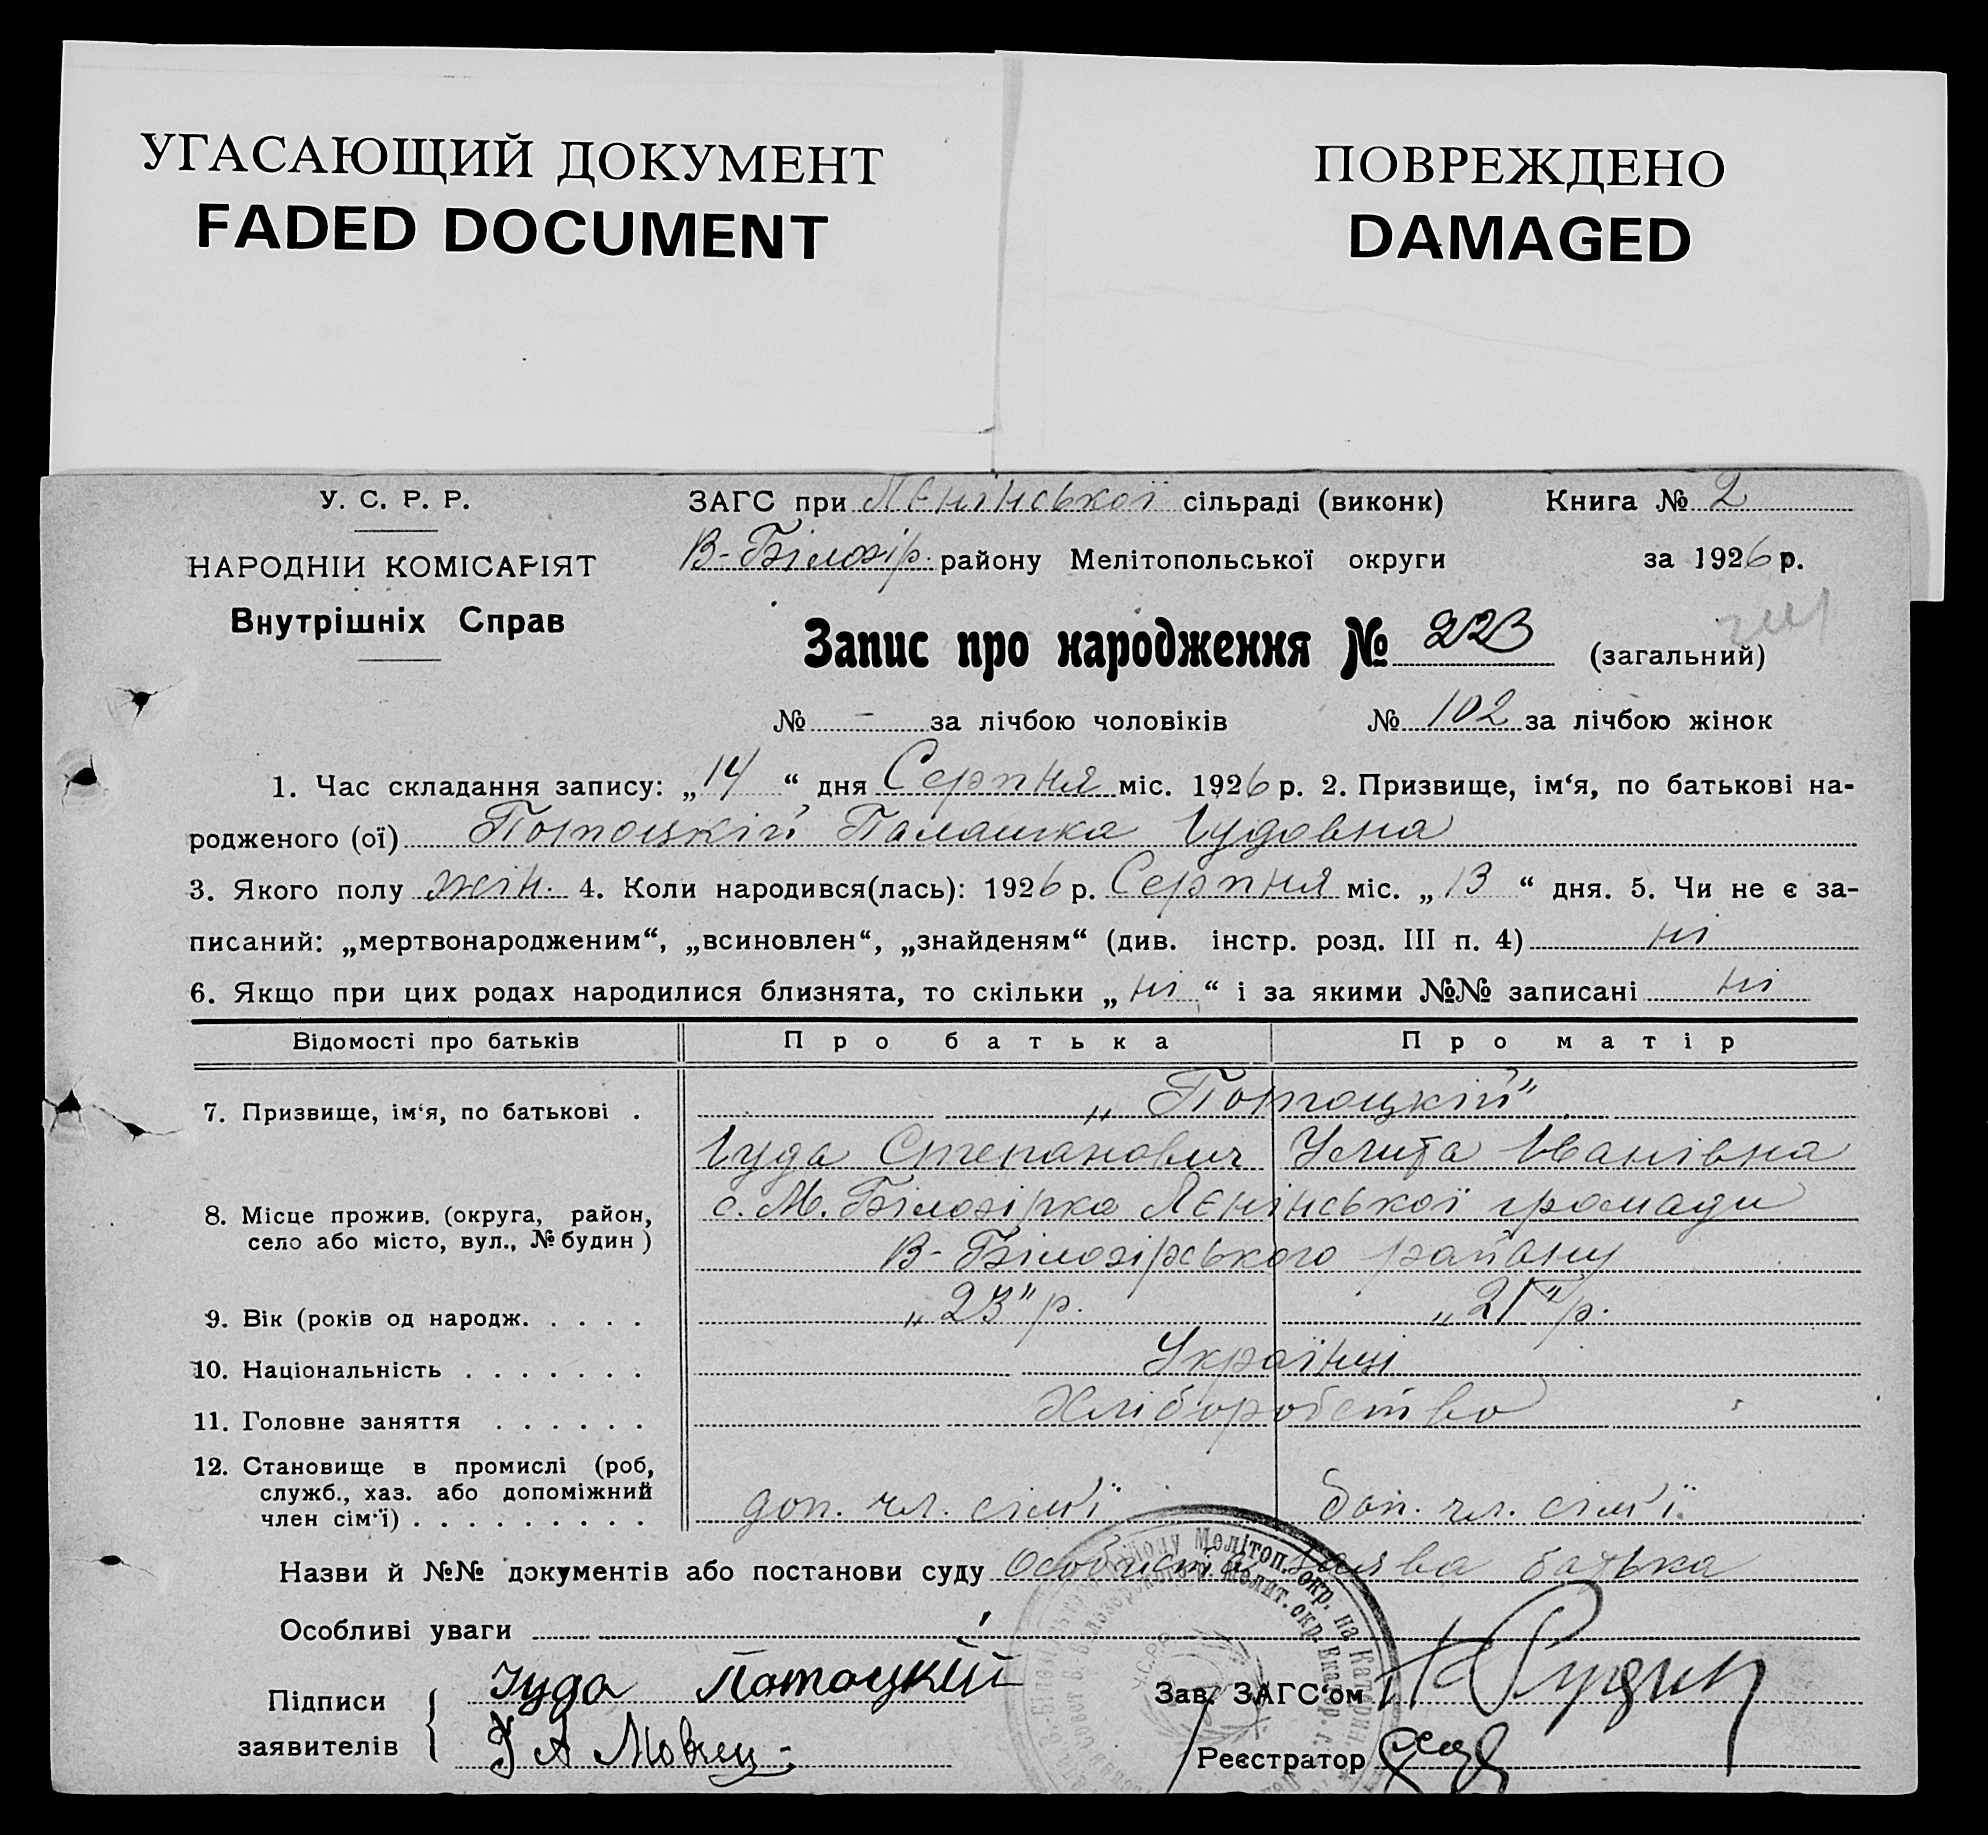 УГАСАЮЩИЙ ДОКУМЕНТ
FADED DOCUMENT
ПОВРЕЖДЕНО
DAMAGED
У. С. Р. Р.
НАРОДНІЙ КОМІСАРІЯТ
Внутрішніх Справ
ЗАГС при Лєнінської сільраді (виконк) Книга № 2
В-Білозір. району Мелітопольської округи за 1926 р.
Запис про народження № 223 (загальний)
№ - за лічбою чоловіків № 102 за лічбою жінок
1. Час складання запису: „14“ дня Серпня міс. 1926 р. 2. Призвище, ім‘я, по батькові на-
родженого (ої) Потоцкій Палашка Іудовна
3. Якого полу жін. 4. Коли народився(лась): 1926 р. Серпня міс. „13“ дня. 5. Чи не є за-
писаний: „мертвонародженим“, „всиновлен“, „знайденям“ (див. інстр. розд. III п. 4) ні
6. Якщо при цих родах народилися близнята, то скільки „ні“ і за якими №№ записані ні
Відомості про батьків Про батька Про матір
7. Призвище, ім‘я, по батькові . „Потоцкій"
Іуда Степанович Улита Іванівна
8. Місце прожив. (округа, район, село або місто, вул., № будин) с. М. Білозірка Лєнінської громади
В-Білозірського району
9. Вік (років од народж. . . . . „23" р. „21" р.
10. Національність . . . . . . . Українці
11. Головне заняття . . . . . . Хліборобство
12. Становище в промислі (роб,
служб., хаз. або допоміжний
член сім‘ї) . . . . . . . . . доп. чл. сім'ї доп. чл. сім'ї.
Назви й №№ документів або постанови суду Особиста заява батька
Особливі уваги
Підписи заявителів Іуда Потоцкій
Зав. ЗАГС‘ом
Реєстратор